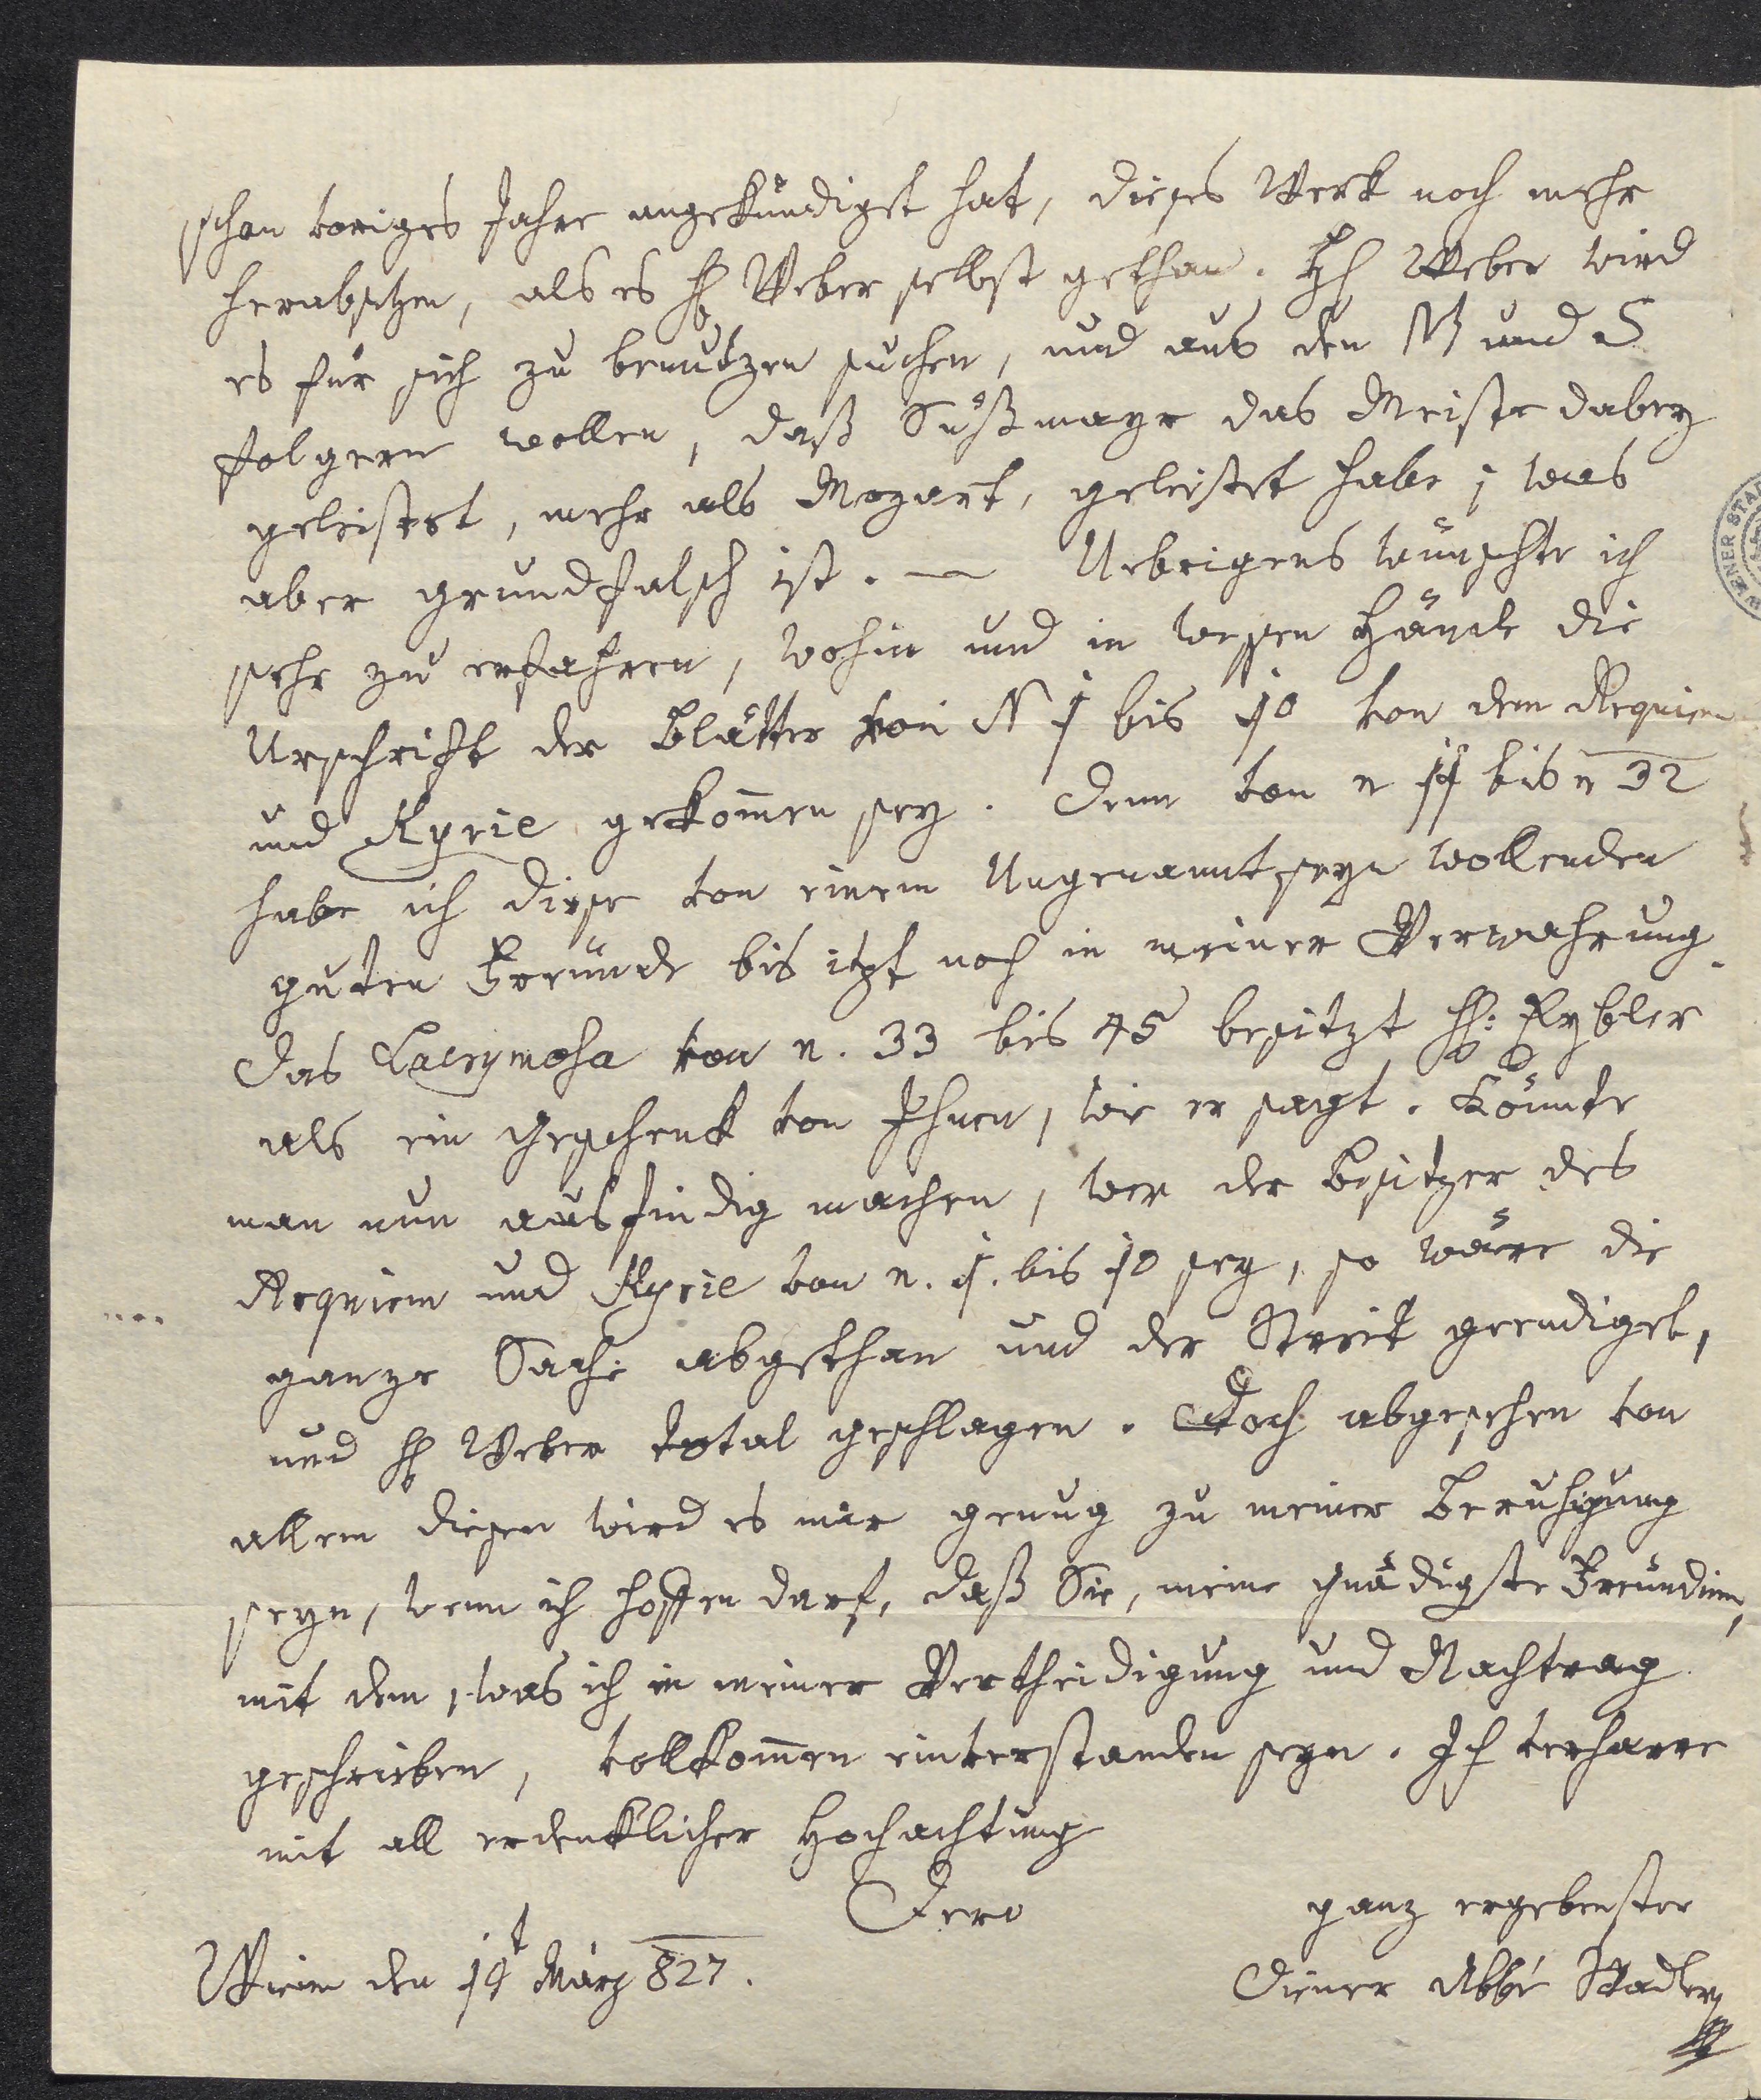 schon voriges Jahre angekündiget hat, dieses Werk noch mehr
herabsetzen, als es H Weber selbst gethan. H Weber wird
es für sich zu benutzen suchen, und aus den M und S
folgern wollen, daß Süßmayr das Meiste dabey
geleistet, mehr als Mozart, geleistet habe; was
aber grundfalsch ist. — Uebrigens wünschte ich
sehr zu erfahren, wohin und in wessen Hände die
Urschrift der Blätter von N 1 bis 10 von dem Requiem
und Kyrie gekom̄en sey. Denn von n 11 bis n 32
habe ich diese von einem Ungenannt seyn wollenden
guten Freünde bis itzt noch in meiner Verwahrung.
Das Lacrymosa von n. 33 bis 45 besitzt H: Eybler
als ein Geschenk von Ihnen, wie er sagt. Könnte
man nun ausfindig machen, wer der Besitzer des
Requiem und Kyrie von n. 1. bis 10 sey, so wäre die
ganze Sache abgethan und der Streit geendiget,
und H Weber total geschlagen. Doch abgesehen von
allem diesen wird es mir genug zu meiner Beruhigung
seyn, wenn ich hoffen darf, daß Sie, meine gnädigste Freündinn,
mit dem, was ich in meiner Vertheidigung und Nachtrag
geschrieben, vollkom̄en einverstanden seyn. Ich verharre
mit all erdenklicher Hochachtung
Dero
ganz ergebenster
Wien den 14t März 827.
Diener Abbé Stadler
WIENER STA